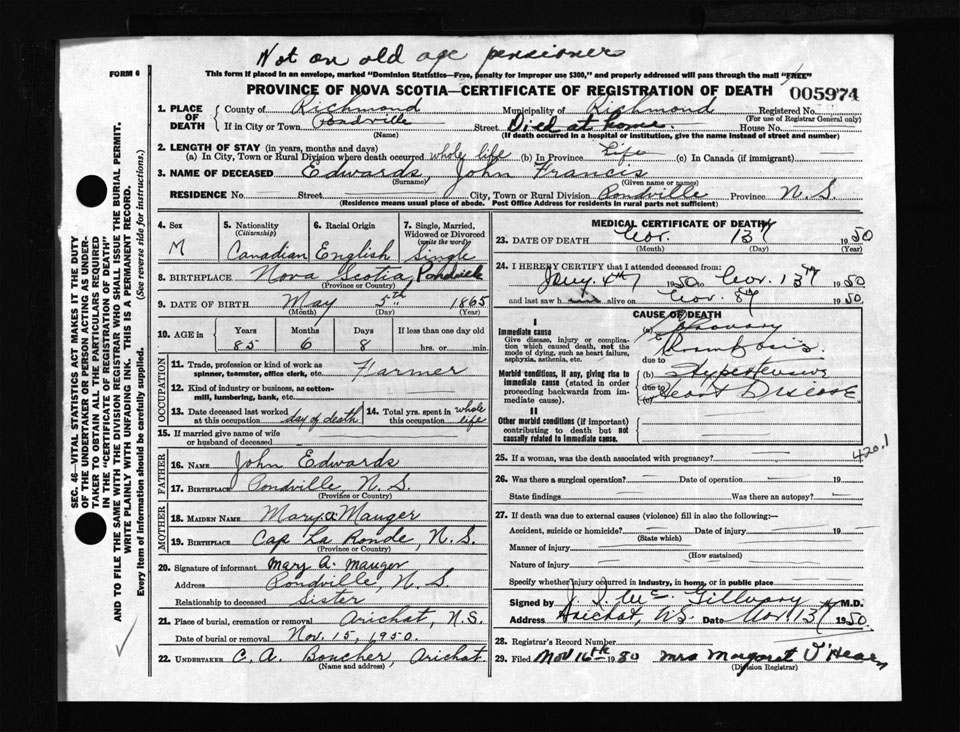 Not on old age pensioners
FORM 6
This form if placed in an envelope, marked "Dominion Statistics—Free, penalty for improper use $300," and properly addressed will pass through the mail "FREE"
PROVINCE OF NOVA SCOTIA—CERTIFICATE OF REGISTRATION OF DEATH
005974
1. PLACE OF DEATH
County of Richmond Municipality of Richmond Registered No.
(For use of Registrar General only)
If in City or Town Pondville Street Died at home House No.
(Name) (If death occurred in a hospital or institution, give the name instead of street and number)
2. LENGTH OF STAY (in years, months and days)
(a) In City, Town or Rural Division where death occurred whole life (b) In Province Life (c) In Canada (if immigrant)
3. NAME OF DECEASED Edwards, John Francis
(Surname) (Given name or names)
RESIDENCE No. Street City, Town or Rural Division Pondville Province N. S.
(Residence means usual place of abode. Post Office Address for residents in rural parts not sufficient)
4. Sex M
5. Nationality (Citizenship) Canadian
6. Racial Origin English
7. Single, Married, Widowed or Divorced (write the word) Single
8. BIRTHPLACE Nova Scotia,
(Province or Country)
9. DATE OF BIRTH May 5th 1865
(Month) (Day) (Year)
10. AGE in Years Months Days If less than one day old
85 6 8 hrs. or min.
OCCUPATION
11. Trade, profession or kind of work as spinner, teamster, office clerk, etc. Farmer
12. Kind of industry or business, as cotton-mill, lumbering, bank, etc.
13. Date deceased last worked at this occupation day of death
14. Total yrs. spent in this occupation whole life
15. If married give name of wife or husband of deceased
FATHER
16. NAME John Edwards
17. BIRTHPLACE Pondville, N. S.
(Province or Country)
MOTHER
18. MAIDEN NAME Mary Mauger
19. BIRTHPLACE Cap La Ronde, N. S.
(Province or Country)
20. Signature of informant Mary A. Mauger
Address Pondville, N. S.
Relationship to deceased Sister
21. Place of burial, cremation or removal Arichat, N.S.
Date of burial or removal Nov. 15, 1950.
22. UNDERTAKER C. A. Boucher, Arichat
(Name and address)
MEDICAL CERTIFICATE OF DEATH
23. DATE OF DEATH Nov. 13th 1950
(Month) (Day) (Year)
24. I HEREBY CERTIFY that I attended deceased from:
1950 to Nov. 13th 1950
and last saw h alive on Nov. 8th 1950.
CAUSE OF DEATH
I
Immediate cause
Give disease, injury or complication which caused death, not the mode of dying, such as heart failure, asphyxia, asthenia, etc.
(a) Coronary
Thrombosis
due to
Morbid conditions, if any, giving rise to immediate cause (stated in order proceeding backwards from immediate cause).
(b) Hypertensive
due to
(c) Heart Disease
II
Other morbid conditions (if important) contributing to death but not causally related to immediate cause.
420.1
25. If a woman, was the death associated with pregnancy?
26. Was there a surgical operation? Date of operation 19
State findings Was there an autopsy?
27. If death was due to external causes (violence) fill in also the following:—
Accident, suicide or homicide? Date of injury 19
(State which)
Manner of injury
(How sustained)
Nature of injury
Specify whether injury occurred in industry, in home, or in public place
Signed by Gillvary M.D.
Address Arichat, N.S. Date Nov 13th 1950.
28. Registrar's Record Number
29. Filed Nov 16th 1950 Mrs Margaret O'Hearn
(Division Registrar)
SEC. 46—VITAL STATISTICS ACT MAKES IT THE DUTY OF THE UNDERTAKER OR PERSON ACTING AS UNDERTAKER TO OBTAIN ALL THE PARTICULARS REQUIRED IN THE "CERTIFICATE OF REGISTRATION OF DEATH" AND TO FILE THE SAME WITH THE DIVISION REGISTRAR WHO SHALL ISSUE THE BURIAL PERMIT.
WRITE PLAINLY WITH UNFADING INK. THIS IS A PERMANENT RECORD.
Every item of information should be carefully supplied. (See reverse side for instructions.)